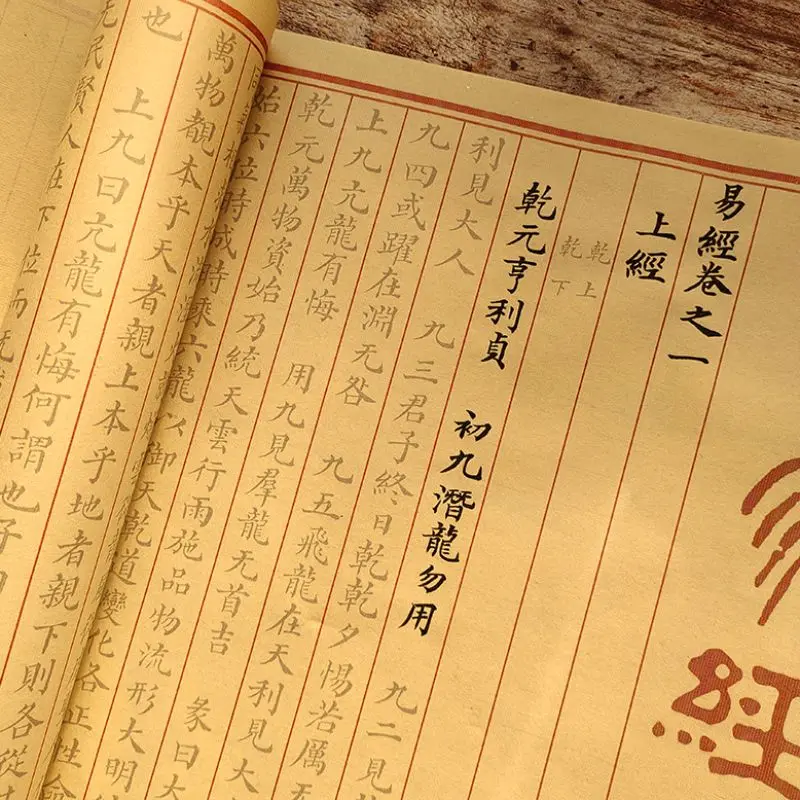 易經卷之一
上經
乾上
乾下
乾元亨利貞 初九潛龍勿用 九二見
利見大人 九三君子終日乾乾夕惕若厲无
九四或躍在淵无咎 九五飛龍在天利見大
上九亢龍有悔 用九見羣龍无首吉 彖曰大
乾元萬物資始乃統天雲行雨施品物流形大明
始六位時成時乘六龍以御天乾道變化各正性命
萬物覩本乎天者親上本乎地者親下則各從
也 上九曰亢龍有悔何謂也子曰
无民賢人在下位而无
經